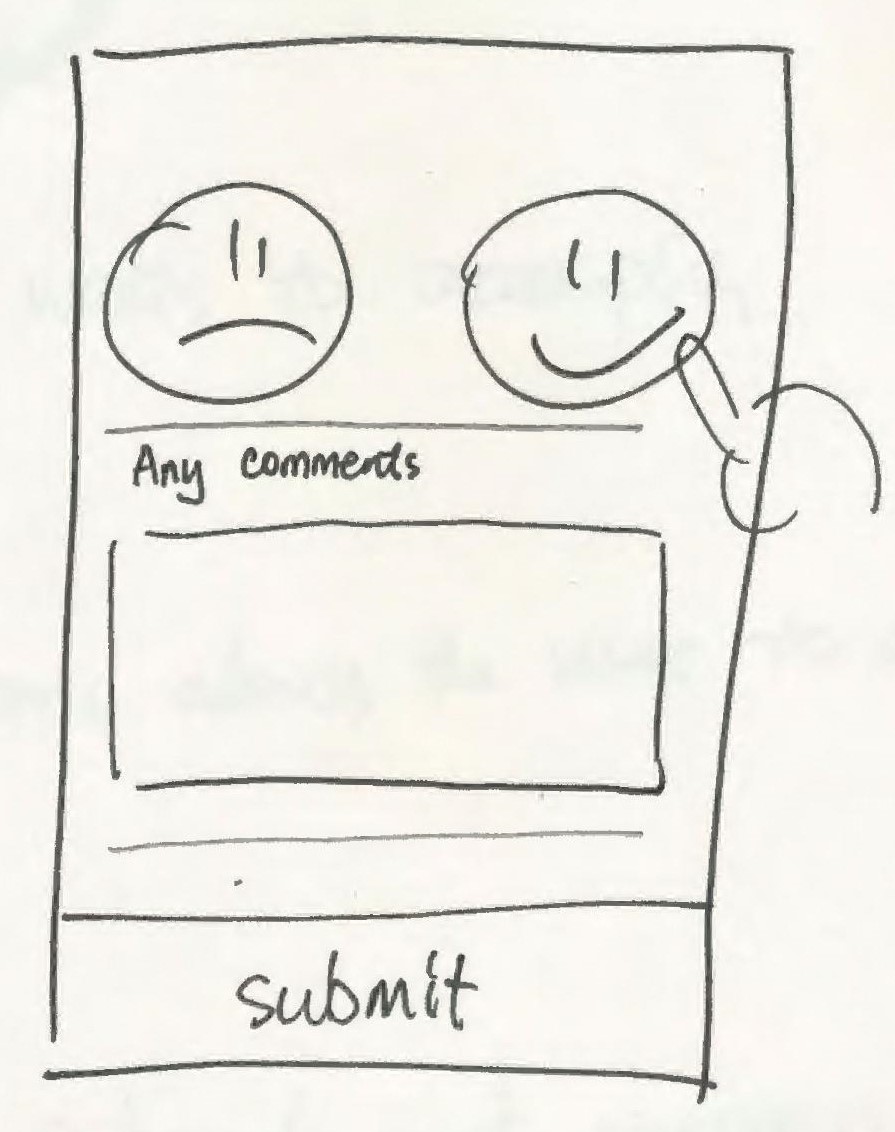 Any comments
submit